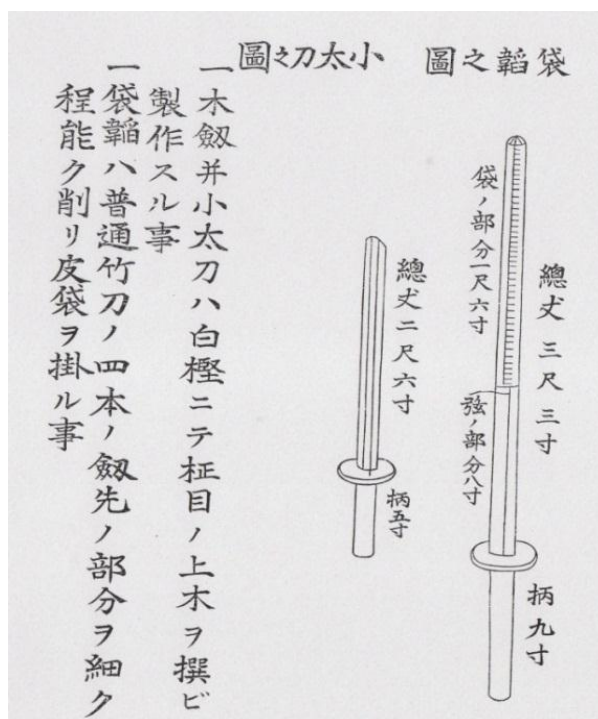 袋韜之圖
總丈三尺三寸
袋ノ部分一尺六寸
弦ノ部分八寸
柄九寸
小太刀之圖
總丈二尺六寸
柄五寸
一木劔并小太刀ハ白樫ニテ柾目ノ上木ヲ撰ビ
製作スル事
一袋韜ハ普通竹刀ノ四本ノ劔先ノ部分ヲ細ク
程能ク削リ皮袋ヲ掛ル事